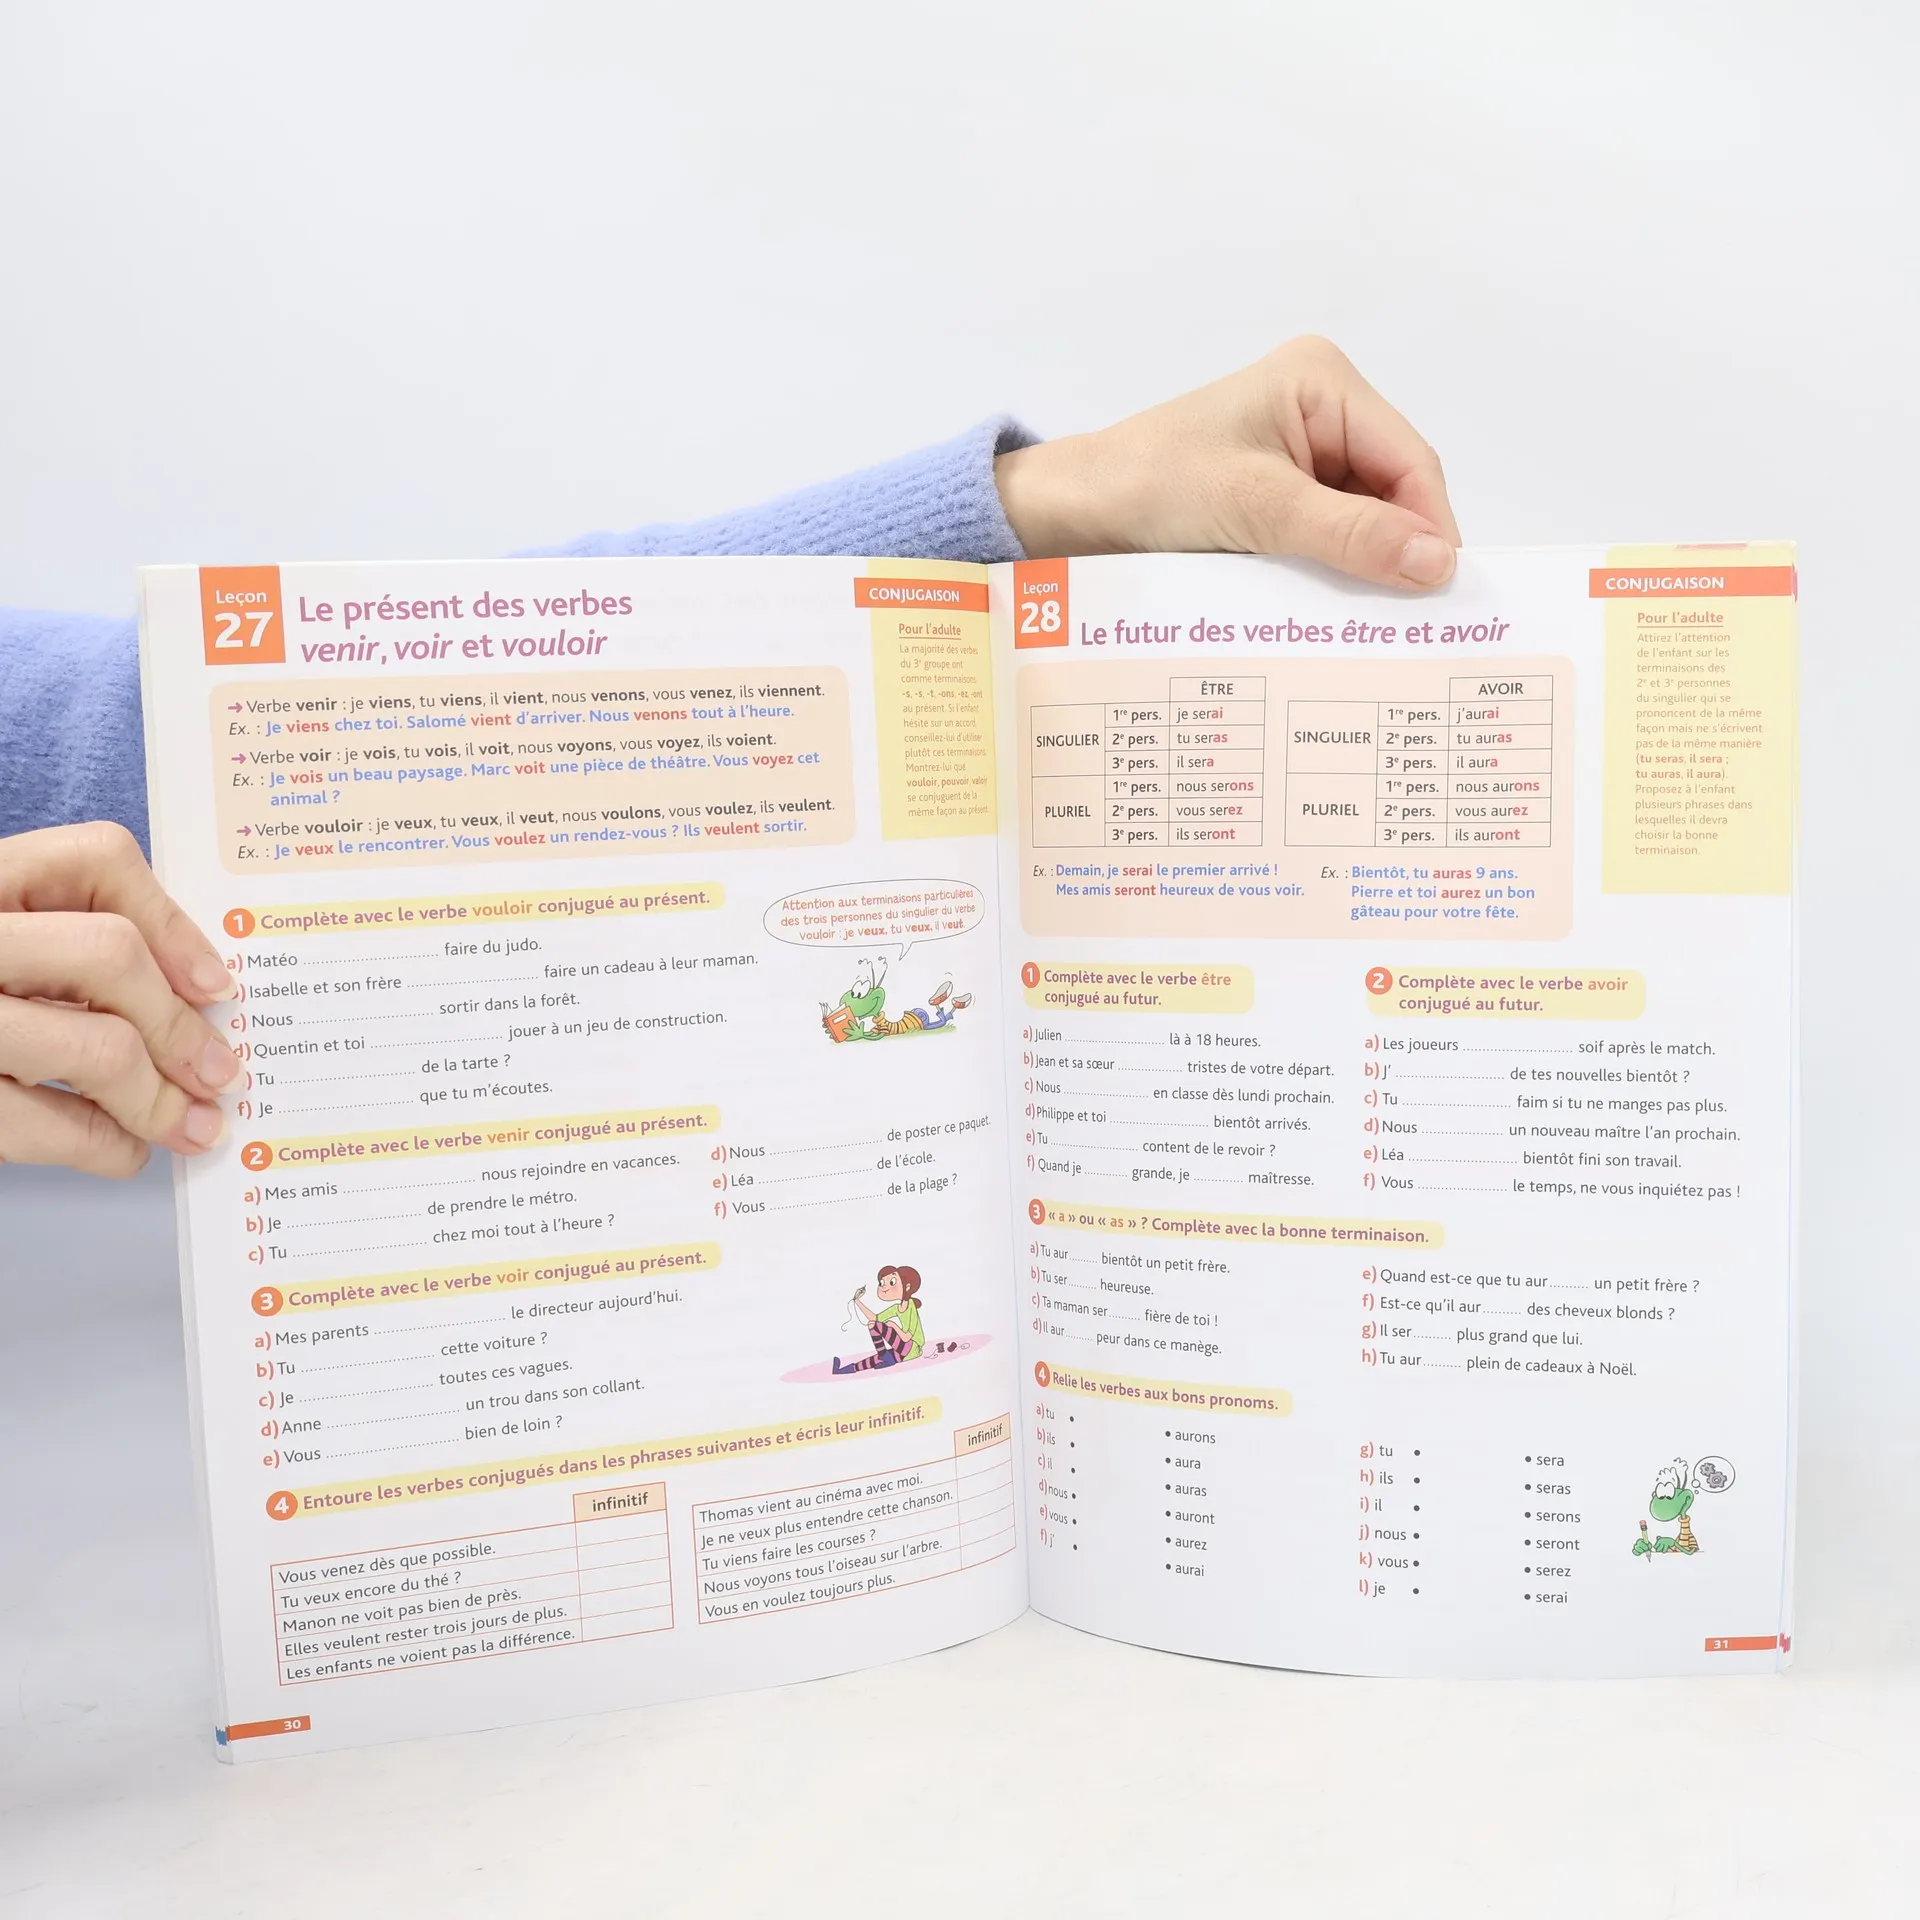 Leçon
27
Le présent des verbes
venir, voir et vouloir
CONJUGAISON
Pour l'adulte
La majorité des verbes
du 3e groupe ont
comme terminaisons
-s, -s, -t, -ons, -ez, -ont
au présent. Si l'enfant
hésite sur un accord
conseillez-lui d'utilise
plutôt ces terminaisons
Montrez-lui que
vouloir, pouvoir, valoir
se conjuguent de la
même façon au présent
➜ Verbe venir : je viens, tu viens, il vient, nous venons, vous venez, ils viennent.
Ex. : Je viens chez toi. Salomé vient d'arriver. Nous venons tout à l'heure.
➜ Verbe voir : je vois, tu vois, il voit, nous voyons, vous voyez, ils voient.
Ex. : Je vois un beau paysage. Marc voit une pièce de théâtre. Vous voyez cet
animal ?
➜ Verbe vouloir : je veux, tu veux, il veut, nous voulons, vous voulez, ils veulent.
Ex. : Je veux le rencontrer. Vous voulez un rendez-vous ? Ils veulent sortir.
1 Complète avec le verbe vouloir conjugué au présent.
a) Matéo .......... faire du judo.
) Isabelle et son frère .......... faire un cadeau à leur maman.
c) Nous .......... sortir dans la forêt.
d) Quentin et toi .......... jouer à un jeu de construction.
) Tu .......... de la tarte ?
f) Je .......... que tu m'écoutes.
Attention aux terminaisons particulières
des trois personnes du singulier du verbe
vouloir : je veux, tu veux, il veut.
2 Complète avec le verbe venir conjugué au présent.
a) Mes amis .......... nous rejoindre en vacances.
b) Je .......... de prendre le métro.
c) Tu .......... chez moi tout à l'heure ?
d) Nous .......... de poster ce paquet.
e) Léa .......... de l'école.
f) Vous .......... de la plage ?
3 Complète avec le verbe voir conjugué au présent.
a) Mes parents .......... le directeur aujourd'hui.
b) Tu .......... cette voiture ?
c) Je .......... toutes ces vagues.
d) Anne .......... un trou dans son collant.
e) Vous .......... bien de loin ?
4 Entoure les verbes conjugués dans les phrases suivantes et écris leur infinitif.
infinitif
Vous venez dès que possible.
Tu veux encore du thé ?
Manon ne voit pas bien de près.
Elles veulent rester trois jours de plus.
Les enfants ne voient pas la différence.
infinitif
Thomas vient au cinéma avec moi.
Je ne veux plus entendre cette chanson.
Tu viens faire les courses ?
Nous voyons tous l'oiseau sur l'arbre.
Vous en voulez toujours plus.
30
Leçon
28
Le futur des verbes être et avoir
CONJUGAISON
Pour l'adulte
Attirez l'attention
de l'enfant sur les
terminaisons des
2e et 3e personnes
du singulier qui se
prononcent de la même
façon mais ne s'écrivent
pas de la même manière
(tu seras, il sera ;
tu auras, il aura).
Proposez à l'enfant
plusieurs phrases dans
lesquelles il devra
choisir la bonne
terminaison.
ÊTRE
SINGULIER
1re pers. je serai
2e pers. tu seras
3e pers. il sera
PLURIEL
1re pers. nous serons
2e pers. vous serez
3e pers. ils seront
AVOIR
SINGULIER
1re pers. j'aurai
2e pers. tu auras
3e pers. il aura
PLURIEL
1re pers. nous aurons
2e pers. vous aurez
3e pers. ils auront
Ex. : Demain, je serai le premier arrivé !
Mes amis seront heureux de vous voir.
Ex. : Bientôt, tu auras 9 ans.
Pierre et toi aurez un bon
gâteau pour votre fête.
1 Complète avec le verbe être
conjugué au futur.
a) Julien .......... là à 18 heures.
b) Jean et sa sœur .......... tristes de votre départ.
c) Nous .......... en classe dès lundi prochain.
d) Philippe et toi .......... bientôt arrivés.
e) Tu .......... content de le revoir ?
f) Quand je .......... grande, je .......... maîtresse.
2 Complète avec le verbe avoir
conjugué au futur.
a) Les joueurs .......... soif après le match.
b) J' .......... de tes nouvelles bientôt ?
c) Tu .......... faim si tu ne manges pas plus.
d) Nous .......... un nouveau maître l'an prochain.
e) Léa .......... bientôt fini son travail.
f) Vous .......... le temps, ne vous inquiétez pas !
3 « a » ou « as » ? Complète avec la bonne terminaison.
a) Tu aur.......... bientôt un petit frère.
b) Tu ser.......... heureuse.
c) Ta maman ser.......... fière de toi !
d) Il aur.......... peur dans ce manège.
e) Quand est-ce que tu aur.......... un petit frère ?
f) Est-ce qu'il aur.......... des cheveux blonds ?
g) Il ser.......... plus grand que lui.
h) Tu aur.......... plein de cadeaux à Noël.
4 Relie les verbes aux bons pronoms.
a) tu •
b) ils •
c) il •
d) nous •
e) vous •
f) j' •
• aurons
• aura
• auras
• auront
• aurez
• aurai
g) tu •
h) ils •
i) il •
j) nous •
k) vous •
l) je •
• sera
• seras
• serons
• seront
• serez
• serai
31